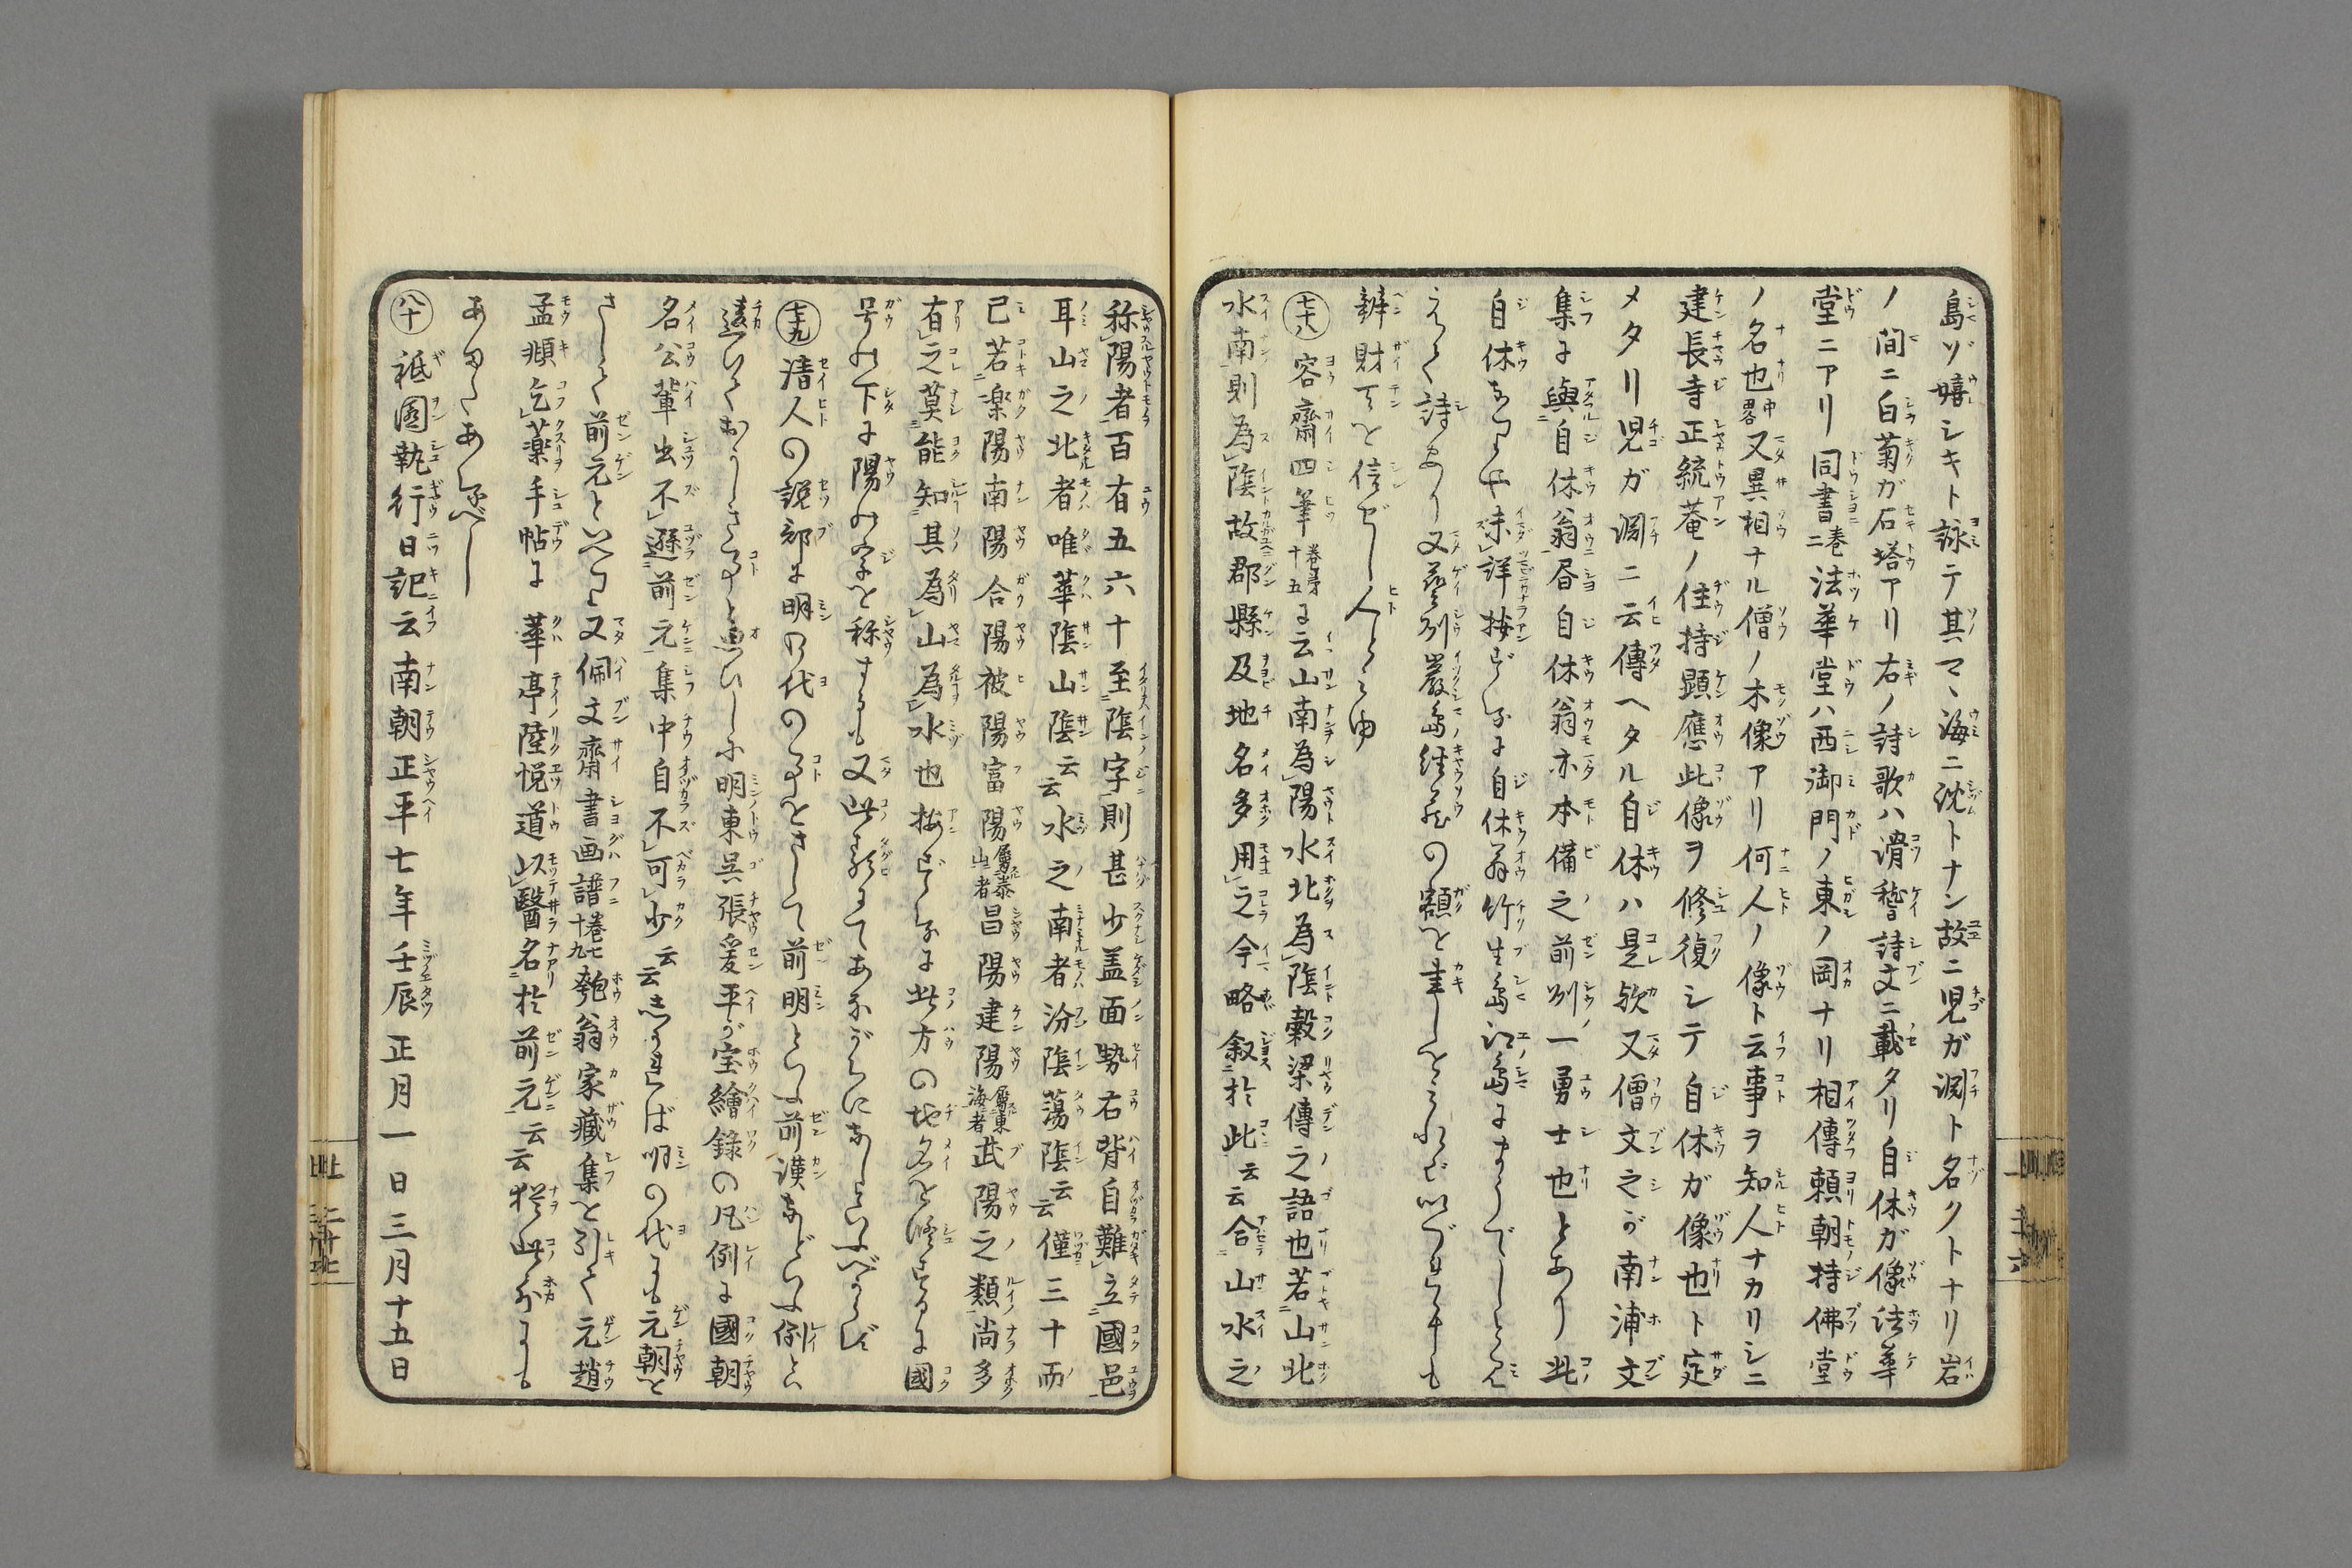 島ゾ嬉シキト詠テ其マヽ海ニ沈トナン故ニ児ガ淵ト名クトナリ岩
ノ間ニ白菊ガ石塔アリ右ノ詩歌ハ滑稽詩文ニ載タリ自休ガ像法華
堂ニアリ同書巻二法華堂ハ西御門ノ東ノ岡ナリ相傳頼朝持佛堂
ノ名也中畧又異相ナル僧ノ木像アリ何人ノ像ト云事ヲ知人ナカリシニ
建長寺正統菴ノ住持顕應此像ヲ修復シテ自休ガ像也ト定
メタリ児ガ淵ニ云傳ヘタル自休ハ是欤又僧文之が南浦文
集に與自休翁昏自休翁亦本備之前州一勇士也とあり此
自休なるにや未詳按ずるに自休翁竹生島江島にまうでしとも見
えて詩あり又藝州巌島経蔵の額を書しをみれど以づれよりも
辨財天を信ぜし人とみゆ
七十八 容齋四筆巻第十五に云山南為陽水北為陰穀梁傳之語也若山北
水南則為陰故郡縣及地名多用之今略叙於此云云合山水之
称陽者百有五六十至陰字則甚少盖面勢右背自難立國邑
耳山之北者唯華陰山陰云云水之南者汾陰蕩陰云云僅三十而
已若楽陽南陽合陽被陽富陽屬泰山者昌陽建陽屬東海者武陽之類尚多
有之莫能知其為山為水也按ずるに此方の地名を修するに國
号の下に陽の字を称するも又此類にてあながちになしといふべからず
七十九 清人の説部に明の代のことをさして前明といふ前漢などいふ例とは
遠ひておかしきことと思ひしに明東呉張爰平が宝繪録の凡例に國朝
名公輩出不遜前元集中自不可少云云しかれば明の代にも元朝を
さして前元といへり又佩文齋書画譜巻七十九匏翁家藏集を引て元趙
孟頫乞薬手帖に華亭陸悦道以醫名於前元云云猶此外にも
あまたあるべし
八十 祗園執行日記云南朝正平七年壬辰正月一日三月十五日